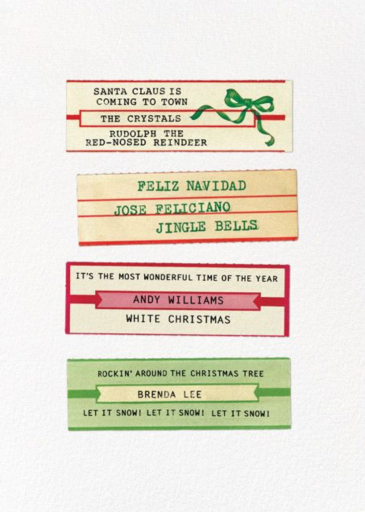 SANTA CLAUS IS
COMING TO TOWN
THE CRYSTALS
RUDOLPH THE
RED-NOSED REINDEER
FELIZ NAVIDAD
JOSE FELICIANO
JINGLE BELLS
IT'S THE MOST WONDERFUL TIME OF THE YEAR
ANDY WILLIAMS
WHITE CHRISTMAS
ROCKIN' AROUND THE CHRISTMAS TREE
BRENDA LEE
LET IT SNOW! LET IT SNOW! LET IT SNOW!